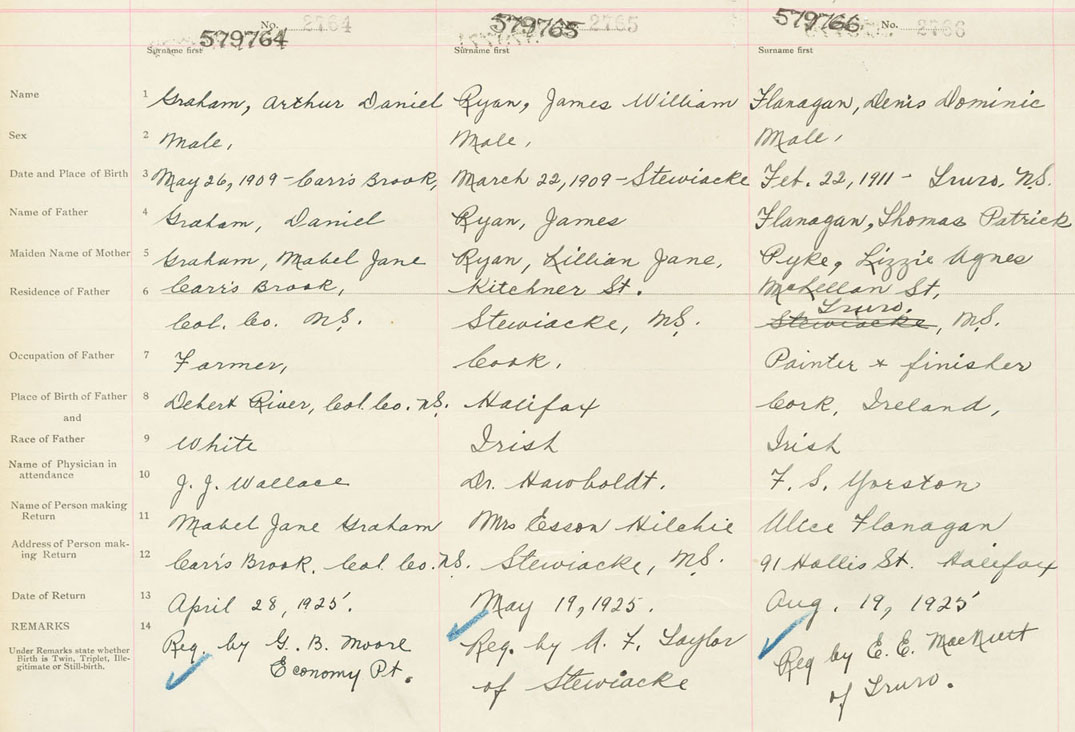 No. 2764
579764
Surname first
2765
579765
Surname first
No. 2766
579766
Surname first
Name 1 Graham, Arthur Daniel Ryan, James William Flanagan, Denis Dominic
Sex 2 Male, Male, Male,
Date and Place of Birth 3 May 26, 1909 - Carr's Brook, March 22, 1909 - Stewiacke Feb. 22, 1911 - Truro, N.S.
Name of Father 4 Graham, Daniel Ryan, James Flanagan, Thomas Patrick
Maiden Name of Mother 5 Graham, Mabel Jane Ryan, Lillian Jane, Pyke, Lizzie Agnes
Residence of Father 6 Carr's Brook, Kitchner St. McKellan St,
Truro,
Col. Co. N.S. Stewiacke, N.S. Stewiacke, N.S.
Occupation of Father 7 Farmer, Cook, Painter & finisher
Place of Birth of Father 8 Debert River, Col. Co. N.S. Halifax Cork, Ireland,
and
Race of Father 9 White Irish Irish
Name of Physician in
attendance 10 J. J. Wallace Dr. Hawboldt. F. S. Yorston
Name of Person making
Return 11 Mabel Jane Graham Mrs Esson Hilchie Alice Flanagan
Address of Person mak-
ing Return 12 Carr's Brook. Col. Co. N.S. Stewiacke, N.S. 91 Hollis St. Halifax
Date of Return 13 April 28, 1925. May 19, 1925. Aug. 19, 1925
REMARKS 14 Reg. by G. B. Moore Reg. by A. F. Taylor Reg by E. E. MacNutt
Under Remarks state whether
Birth is Twin, Triplet, Ille-
gitimate or Still-birth.
Economy Pt. of Stewiacke of Truro.